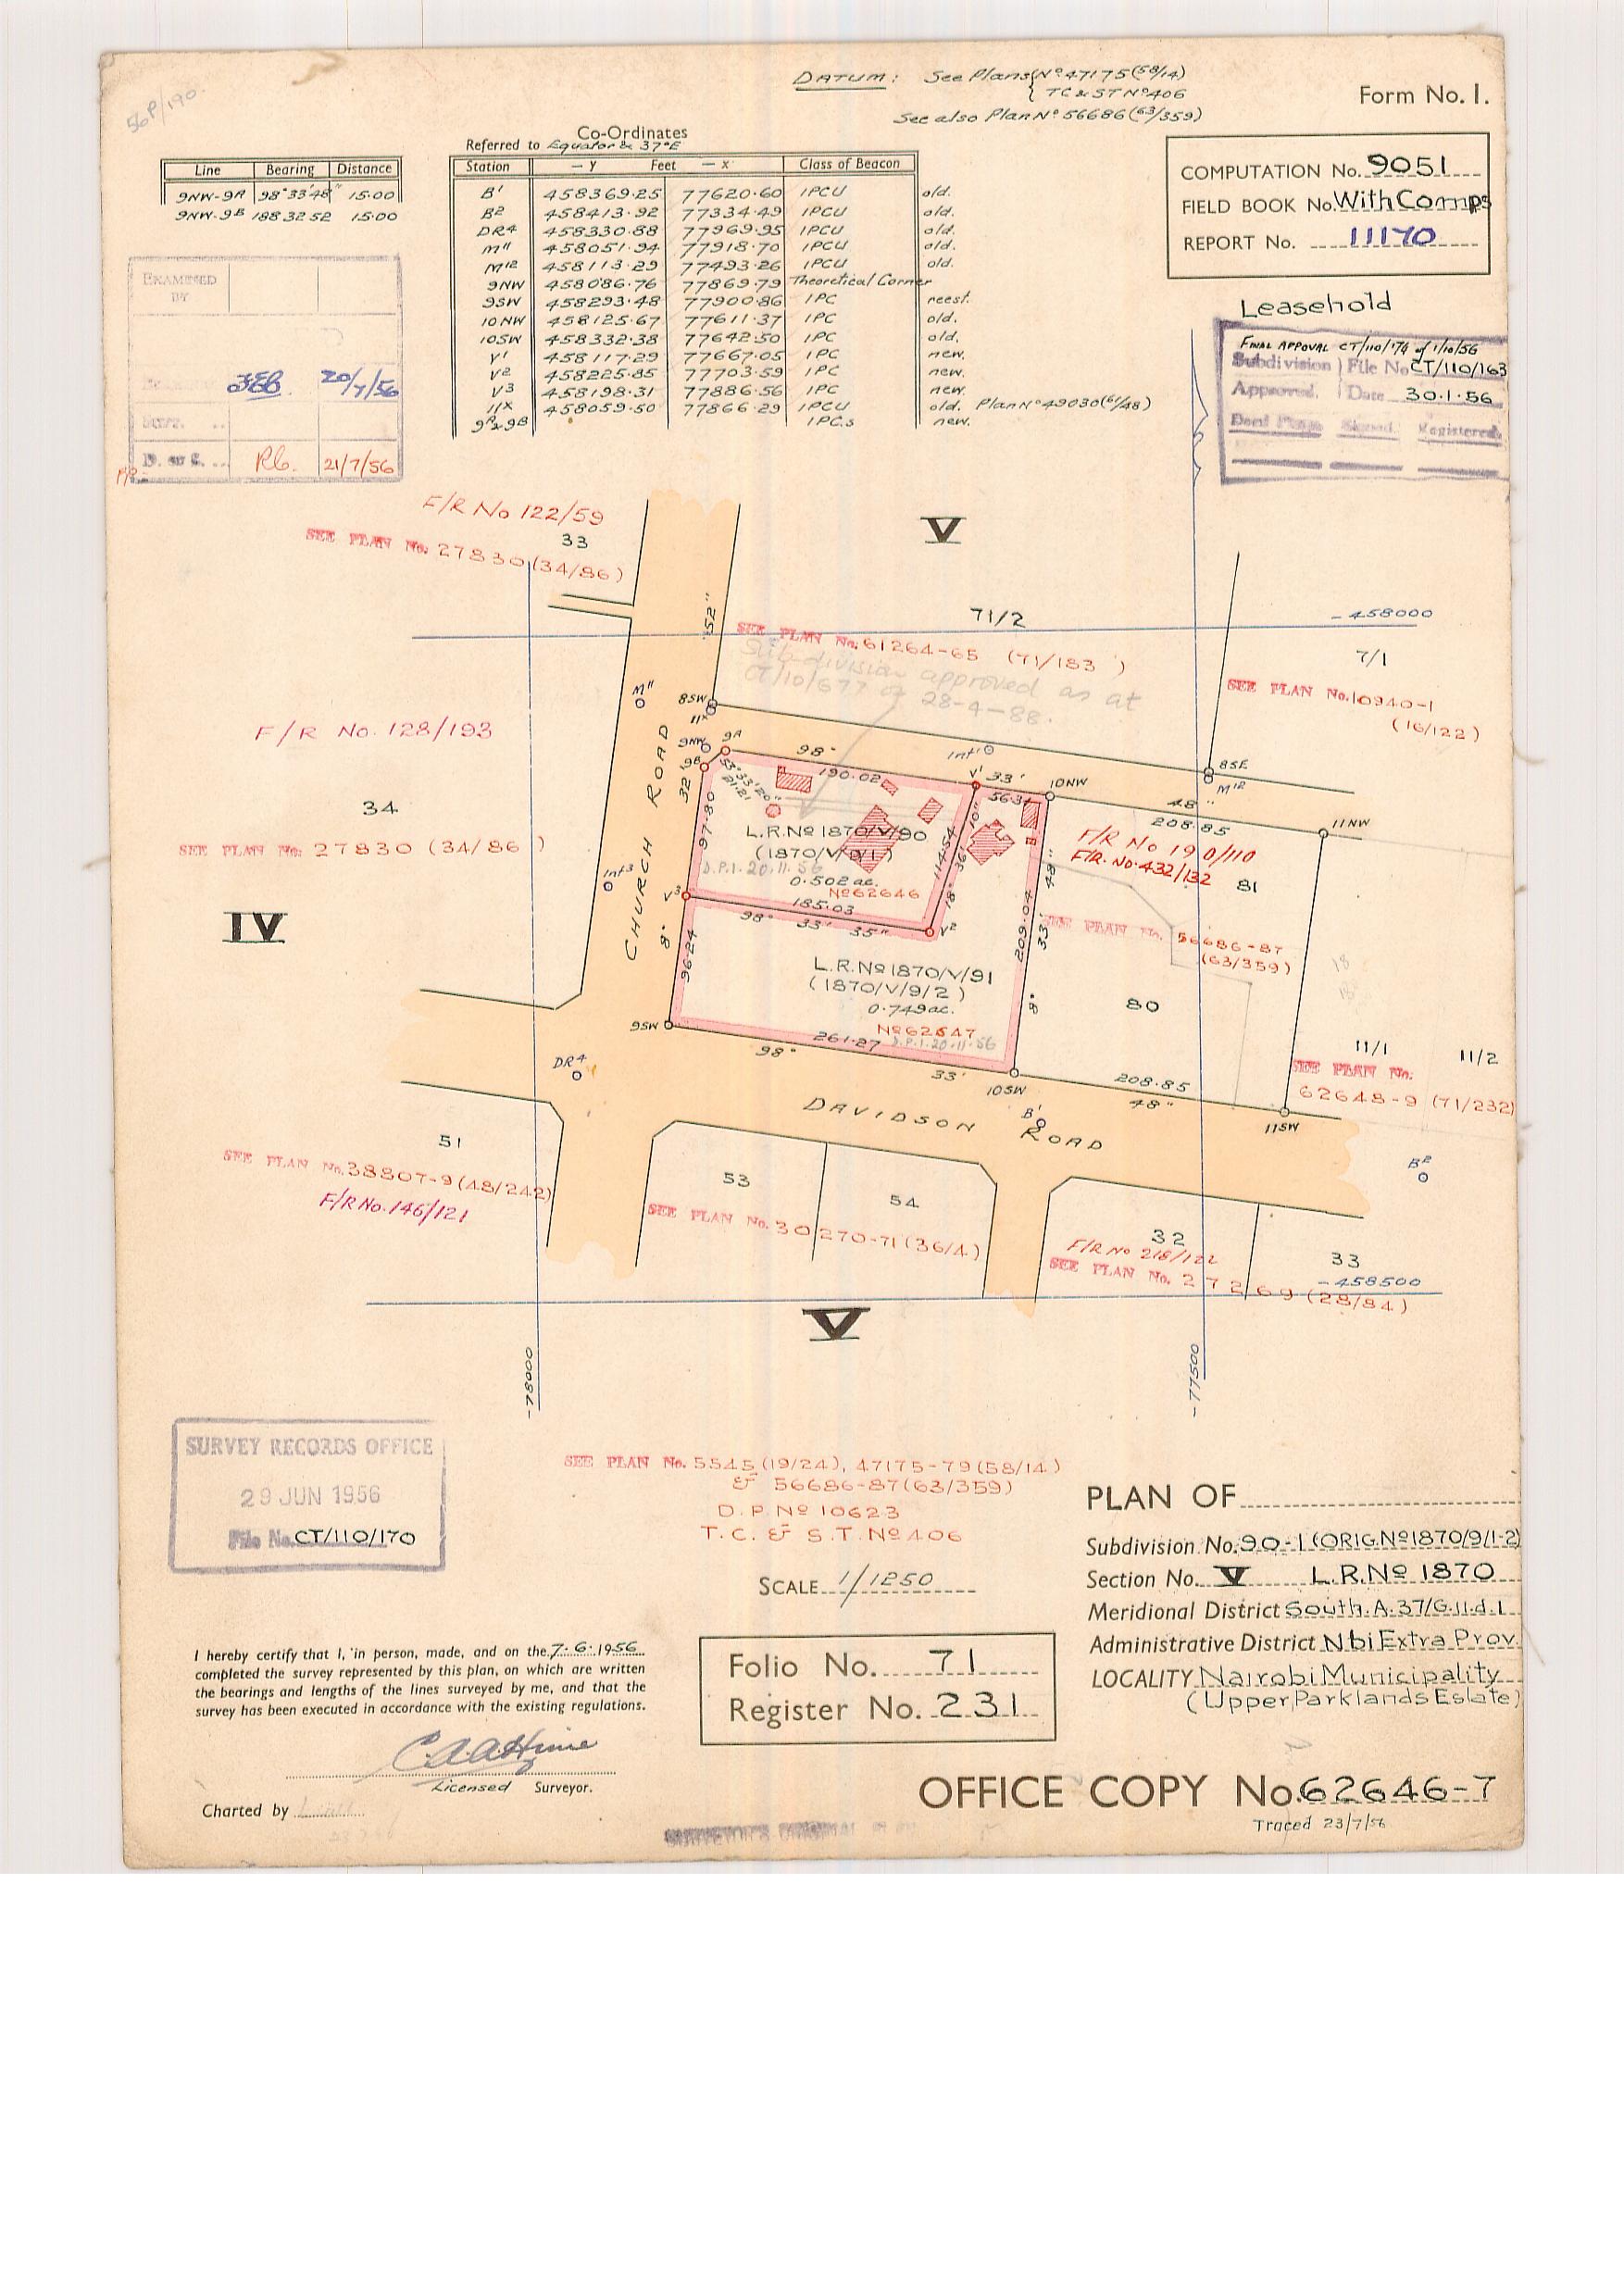 56P/190.
DATUM: See Plans { Nº 47175 (58/14)
TC & ST Nº 406
See also Plan Nº 56686 (63/359)
Form No. 1.
Line Bearing Distance
9NW-9A 98° 33' 48" 15·00
9NW-9B 188 32 52 15·00
Co-Ordinates
Referred to Equator & 37°E
Station — y Feet — x Class of Beacon
B' 458369·25 77620·60 IPCU old.
B² 458413·92 77334·49 IPCU old.
DR⁴ 458330·88 77969·95 IPCU old.
M" 458051·94 77918·70 IPCU old.
M¹² 458113·29 77493·26 IPCU old.
9NW 458086·76 77869·79 Theoretical Corner
9SW 458293·48 77900·86 IPC reest.
10NW 458125·67 77611·37 IPC old.
10SW 458332·38 77642·50 IPC old.
V' 458117·29 77667·05 IPC new.
V² 458225·85 77703·59 IPC new.
V³ 458198·31 77886·56 IPC new.
11x 458059·50 77866·29 IPCU old. Plan Nº 49030 (61/48)
9A & 9B IPC.s new.
COMPUTATION No. 9051
FIELD BOOK No. With Comps
REPORT No. 11170
Leasehold
FINAL APPOVAL CT/110/174 of 1/10/56
Subdivision File No CT/110/163
Approved. Date 30·1·56
Deed Plans Signed Registered
EXAMINED
BY
20/7/56
D. of S. Rb. 21/7/56
F/R No 122/59
33
SEE PLAN No. 27830 (34/86)
V
71/2
-458000
SEE PLAN No. 61264-65 (71/183)
Sub-division approved as at
CT/10/677 of
28-4-88.
7/1
SEE PLAN No. 10940-1
(16/122)
52"
M"
8SW
11x
F/R No. 128/193
9NW
9A
9B
98°
Int'
8SE
M¹²
V'
33'
10NW
48"
208·85
11NW
190·02
56·31
53° 33' 20"
21·21
32"
97·80
CHURCH ROAD
34
SEE PLAN No. 27830 (34/86)
L.R.Nº 1870/V/90
(1870/V/9/1)
D.P.1. 20·11·56
0·502 ac.
Nº 62646
114·54
18° 36' 10"
F/R No 190/110
F/R. No. 432/132
81
Int³
V³
185·03
98° 33' 35"
V²
SEE PLAN No. 56686-87
(63/359)
IV
8°
96·24
L.R.Nº 1870/V/91
(1870/V/9/2)
0·749ac.
Nº 62647
D.P.1. 20·11·56
209·04
8° 33' 48"
80
18
9SW
261·27
98°
33'
10SW
208·85
48"
11SW
11/1
11/2
SEE PLAN No.
62648-9 (71/232)
DR⁴
DAVIDSON ROAD
B'
B²
51
SEE PLAN No. 38807-9 (48/242)
F/R No. 146/121
53
54
SEE PLAN No. 30270-71 (36/4)
32
F/R No 218/122
SEE PLAN No. 27269 (28/84)
33
-458500
V
-78000
-77500
SURVEY RECORDS OFFICE
29 JUN 1956
File No. CT/110/170
SEE PLAN No. 5545 (19/24), 47175-79 (58/14)
& 56686-87 (63/359)
D.P.Nº 10623
T.C. & S.T. Nº 406
SCALE 1/1250
PLAN OF
Subdivision No. 90-1 (ORIG.Nº 1870/9/1-2)
Section No. V L.R.Nº 1870
Meridional District South.A.37/G.11.d.1
Administrative District Nbi Extra Prov.
LOCALITY Nairobi Municipality
(Upper Parklands Estate)
I hereby certify that I, in person, made, and on the 7·6·1956
completed the survey represented by this plan, on which are written
the bearings and lengths of the lines surveyed by me, and that the
survey has been executed in accordance with the existing regulations.
Licensed Surveyor.
Charted by
Folio No. 71
Register No. 231
OFFICE COPY No. 62646-7
Traced 23/7/56